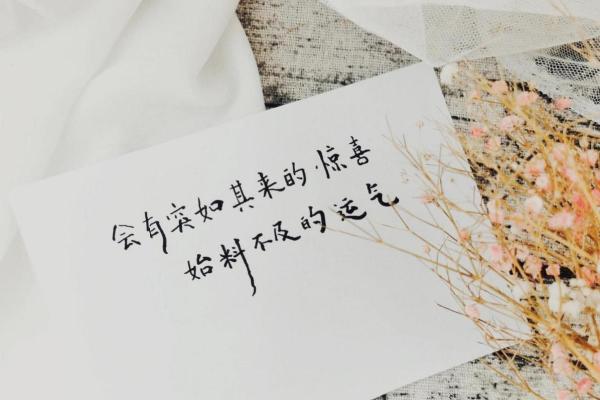 会有突如其来的惊喜
始料不及的运气